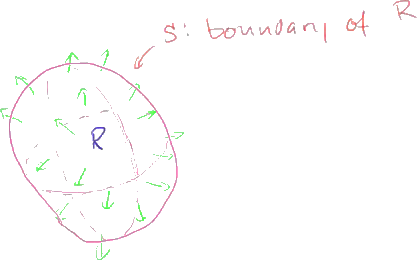 S: boundary of R
R